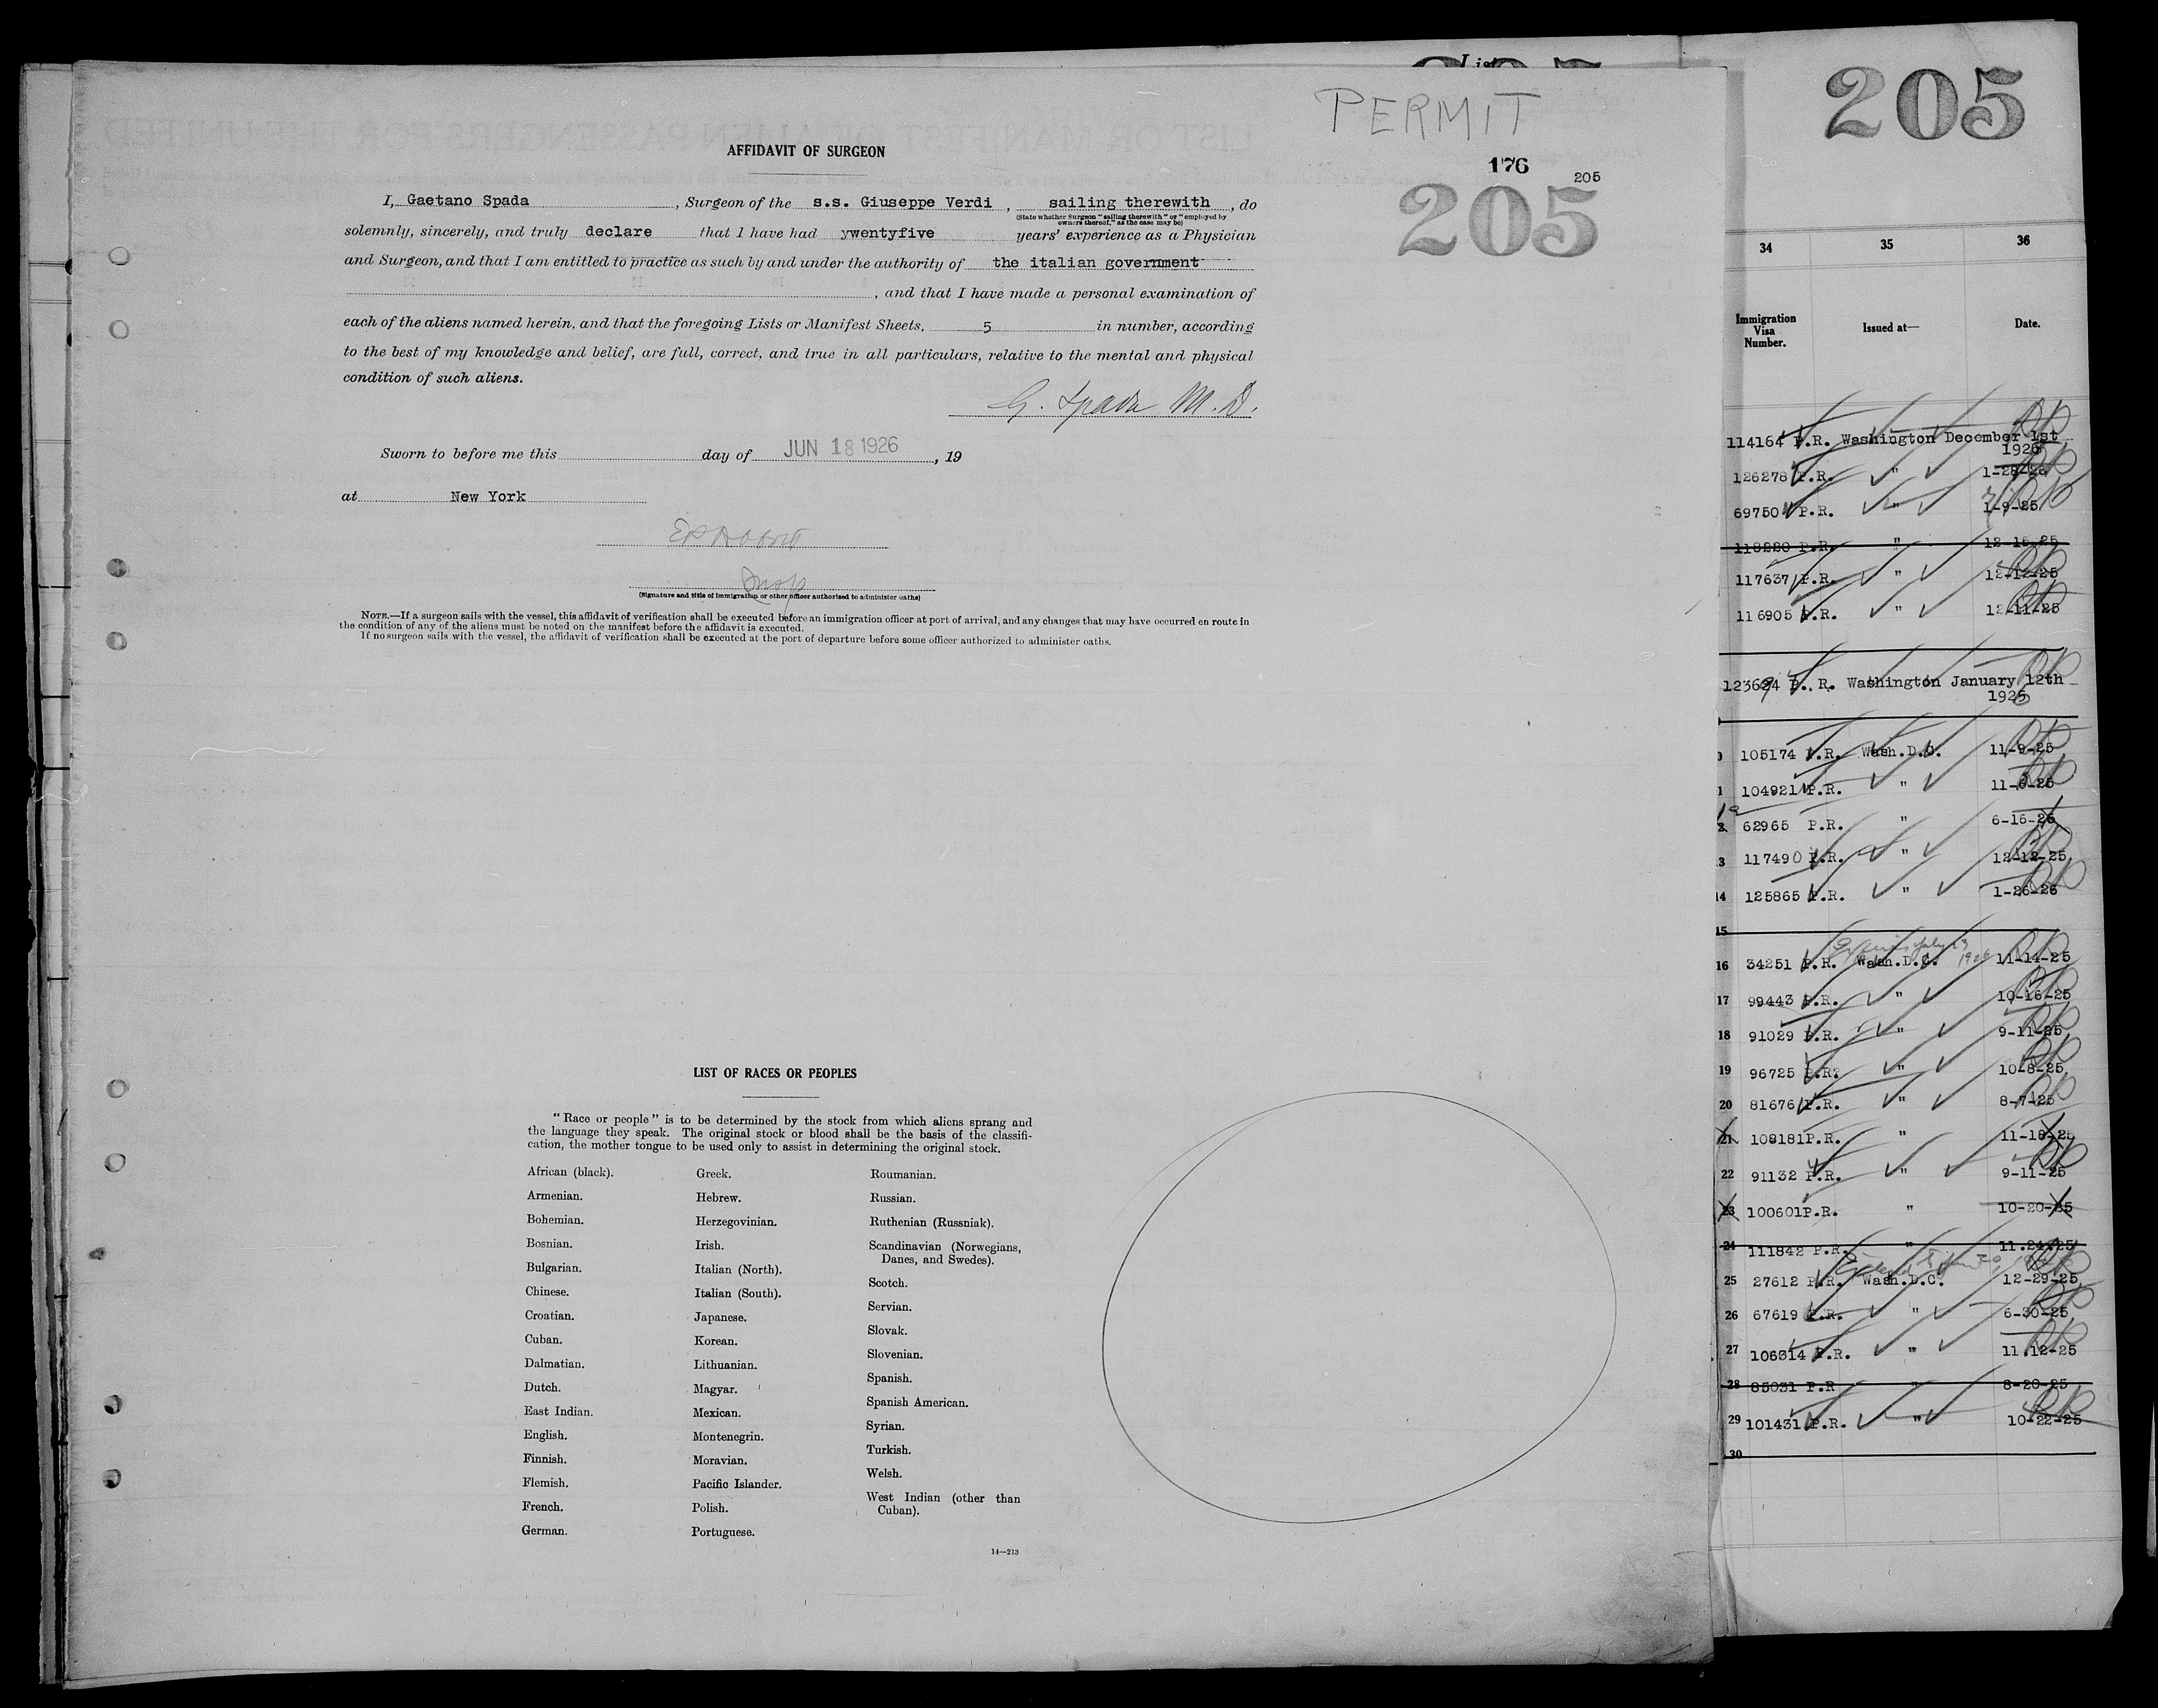 PERMIT
176
205
205
AFFIDAVIT OF SURGEON
I, Gaetano Spada, Surgeon of the s.s. Giuseppe Verdi, sailing therewith, do
(State whether Surgeon "sailing therewith" or "employed by
owners thereof," as the case may be)
solemnly, sincerely, and truly declare that I have had ywentyfive years' experience as a Physician
and Surgeon, and that I am entitled to practice as such by and under the authority of the italian government
, and that I have made a personal examination of
each of the aliens named herein, and that the foregoing Lists or Manifest Sheets, 5 in number, according
to the best of my knowledge and belief, are full, correct, and true in all particulars, relative to the mental and physical
condition of such aliens.
G. Spada M.D.
Sworn to before me this day of JUN 18 1926, 19
at New York
Insp
(Signature and title of immigration or other officer authorized to administer oaths)
NOTE.—If a surgeon sails with the vessel, this affidavit of verification shall be executed before an immigration officer at port of arrival, and any changes that may have occurred en route in
the condition of any of the aliens must be noted on the manifest before the affidavit is executed.
If no surgeon sails with the vessel, the affidavit of verification shall be executed at the port of departure before some officer authorized to administer oaths.
LIST OF RACES OR PEOPLES
"Race or people" is to be determined by the stock from which aliens sprang and
the language they speak. The original stock or blood shall be the basis of the classifi-
cation, the mother tongue to be used only to assist in determining the original stock.
African (black).
Armenian.
Bohemian.
Bosnian.
Bulgarian.
Chinese.
Croatian.
Cuban.
Dalmatian.
Dutch.
East Indian.
English.
Finnish.
Flemish.
French.
German.
Greek.
Hebrew.
Herzegovinian.
Irish.
Italian (North).
Italian (South).
Japanese.
Korean.
Lithuanian.
Magyar.
Mexican.
Montenegrin.
Moravian.
Pacific Islander.
Polish.
Portuguese.
Roumanian.
Russian.
Ruthenian (Russniak).
Scandinavian (Norwegians,
Danes, and Swedes).
Scotch.
Servian.
Slovak.
Slovenian.
Spanish.
Spanish American.
Syrian.
Turkish.
Welsh.
West Indian (other than
Cuban).
14—213
List
205
34 35 36
Immigration
Visa
Number.
Issued at—
Date.
114164 P.R. Washington December 1st
1926
126278 P.R. " 1-28-26
69750 P.R. " 1-9-25
118220 P.R. " 12-15-25
117637 P.R. " 12-12-25
116905 P.R. " 12-11-25
P. R. Washington January 12th
1926
105174 P.R. Wash.D.C. 11-9-25
1 104921 P.R. " 11-6-25
12
62965 P.R. " 6-16-26
3 117490 P.R. " 12-12-25
14 125865 P.R. " 1-26-26
15
July 13
1926
16 34251 P.R. Wash.D.C. 11-14-25
17 99443 P.R. " 10-16-25
18 91029 P.R. " 9-11-25
19 96725 P.R. " 10-8-25
20 81676 P.R. " 8-7-25
21 108181P.R. " 11-18-25
22 91132 P.R. " 9-11-25
23 100601P.R. " 10-20-25
24 111842 P.R. " 11.24.25
25 27612 P.R. Wash.D.C. 12-29-25
26 67619 P.R. " 6-30-25
27 106314 P.R. " 11.12-25
28 85031 P.R " 8-20-25
29 101431 P.R. " 10-22-25
30